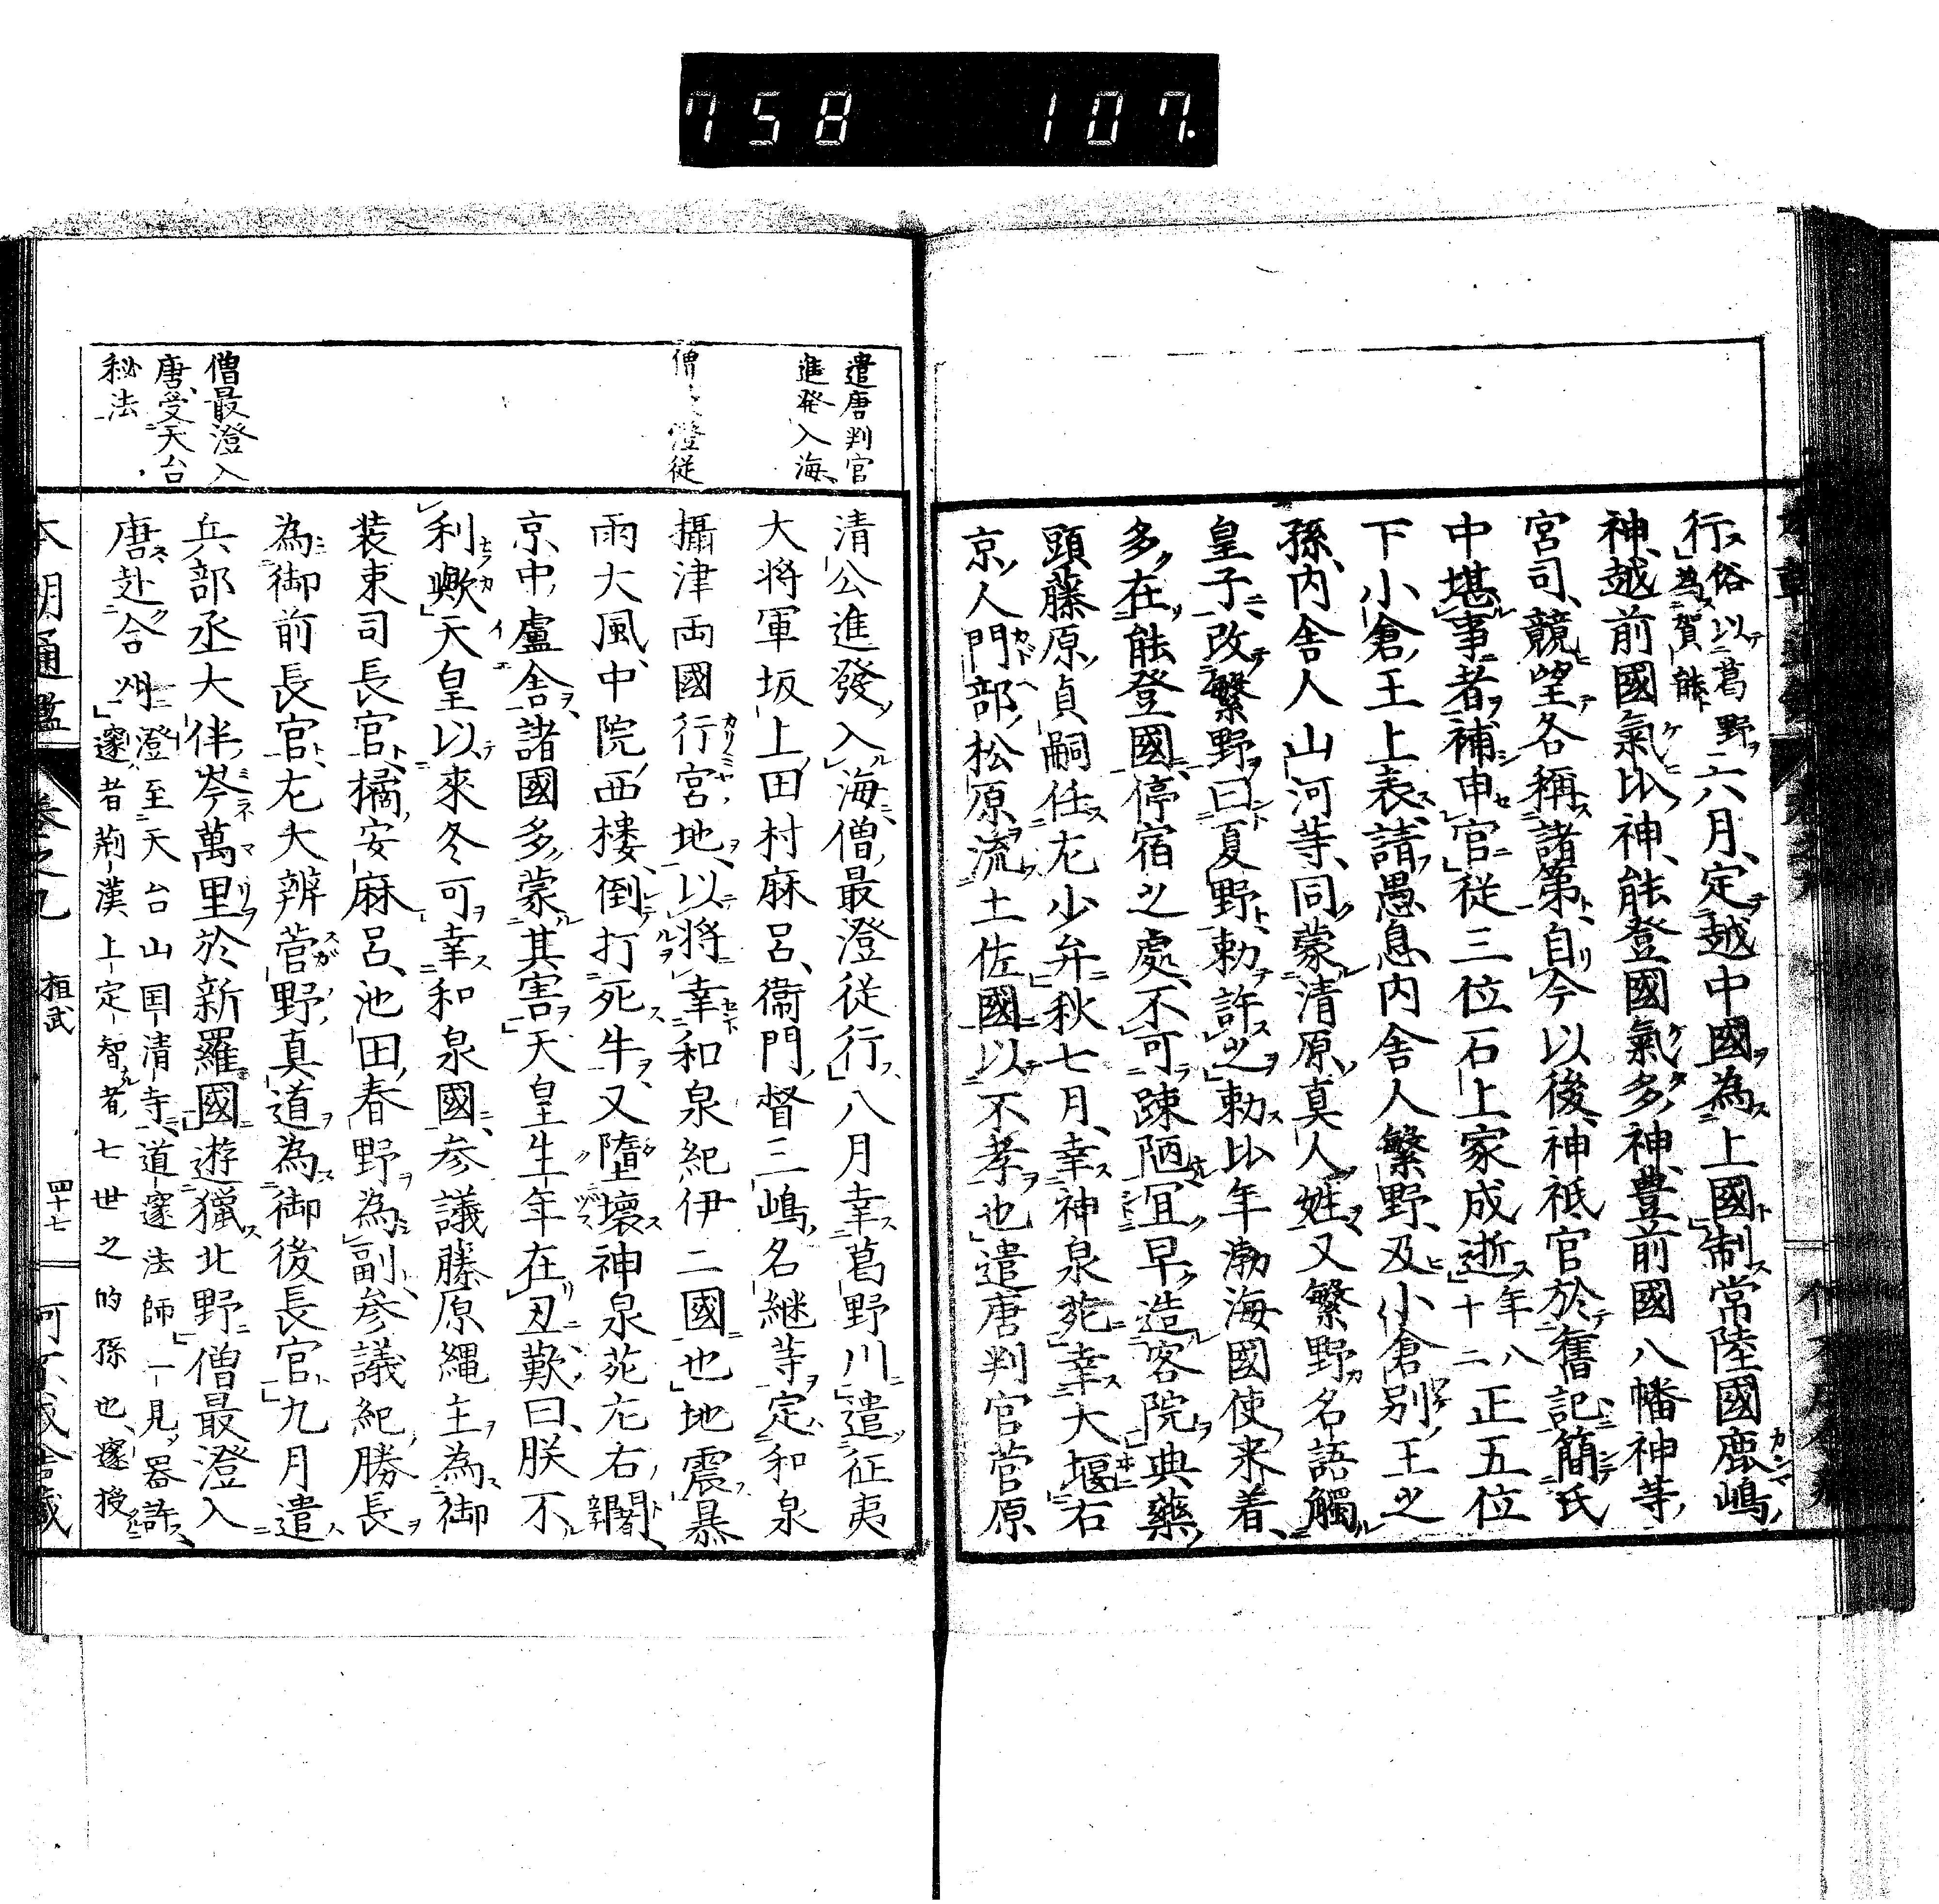 758 107.
行俗以葛野為賀能六月定越中國為上國制常陸國鹿嶋
神越前國氣比神能登國氣多神豊前國八幡神等
宮司競望各稱諸第自今以後神祇官於舊記簡氏
中堪事者補申官從三位石上家成逝年八十二正五位
下小倉王上表請愚息内舎人繁野及小倉別王之
孫内舎人山河等同蒙清原真人姓又繁野名語觸
皇子改繁野曰夏野勅許之勅比年渤海國使来着
多在能登國停宿之處不可踈陋宜早造客院典藥
頭藤原貞嗣任左少弁秋七月幸神泉苑幸大堰右
京人門部松原流土佐國以不孝也遣唐判官菅原
遣唐判官
進発入海
清公進發入海僧最澄従行八月幸葛野川遣征夷
大将軍坂上田村麻呂衞門督三嶋名継等定和泉
僧 澄従
攝津両國行宮地以将幸和泉紀伊二國也地震暴
雨大風中院西樓倒打死牛又墮壊神泉苑左右閣
京中盧舎諸國多蒙其害天皇生年在丑歎曰朕不
利歟天皇以來冬可幸和泉國参議藤原縄主為御
装束司長官橘安麻呂池田春野為副参議紀勝長
為御前長官左大辨菅野真道為御後長官九月遣
僧最澄入
唐受天台
秘法
兵部丞大伴岑萬里於新羅國遊獵北野僧最澄入
唐赴台州澄至天台山国清寺道邃法師一見器許邃者荊漢上定智者七世之的孫也邃授
本朝通鑑 卷之九 桓武 四十七